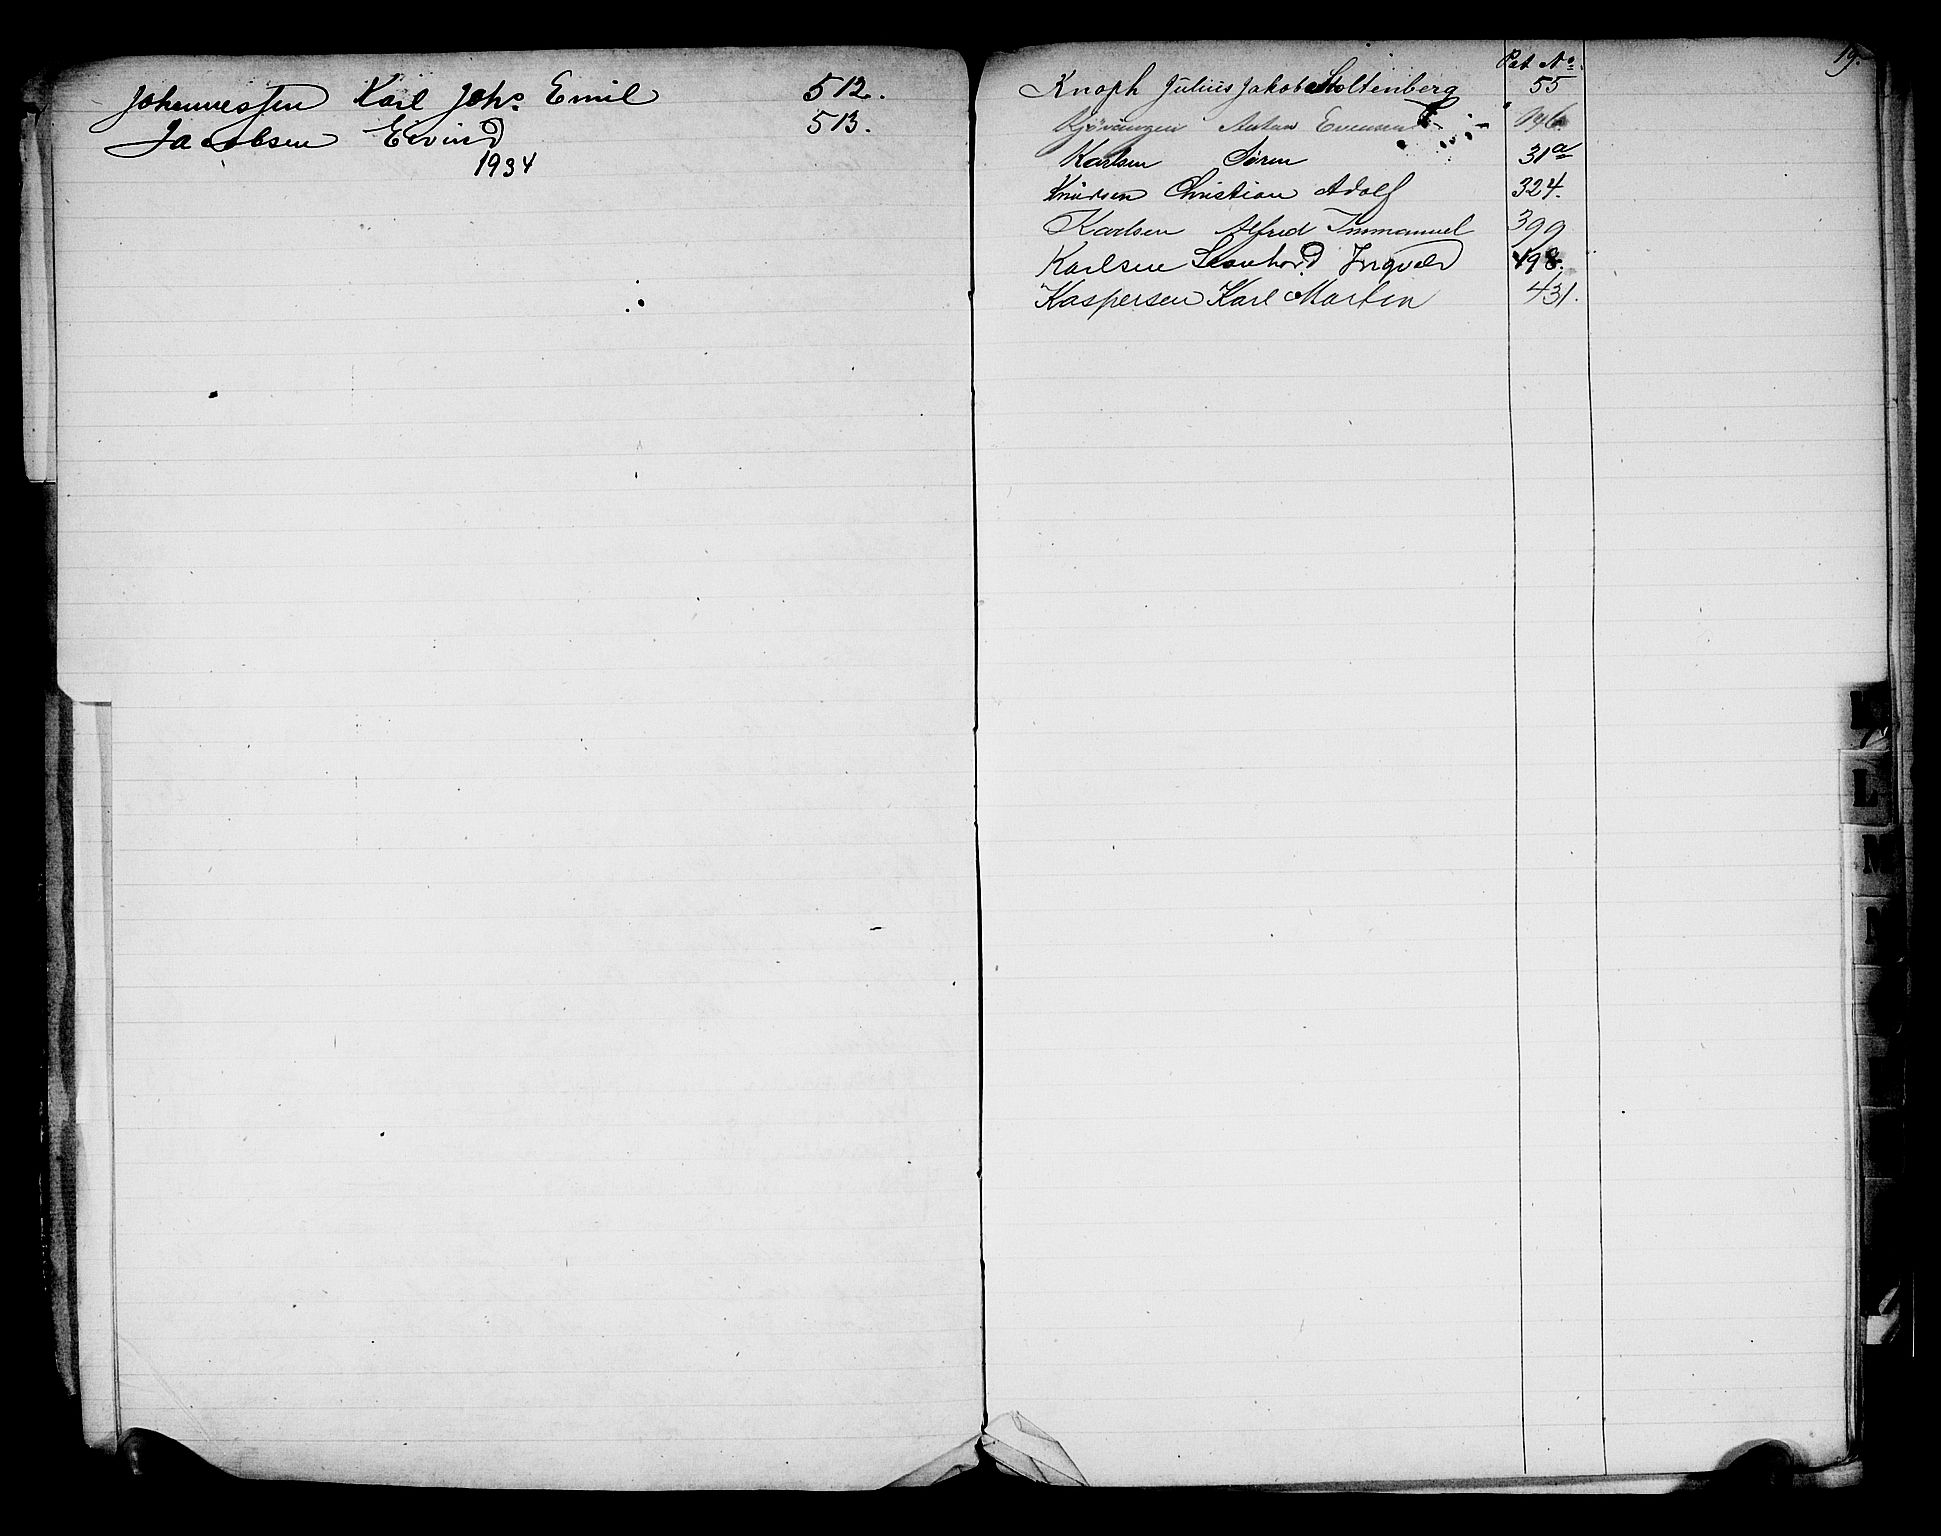 Johannessen Karl Johs Emil 512.
Jacobsen Eivind 513.
1934
19.
Pat No.
Knoph Julius Jakob Stoltenberg 55
Anton Evensen
Karlsen Søren 31a
Knudsen Christian Adolf 324.
Karlsen Alfred Immanuel 399
Karlsen Leonhard Ingvald 498.
Kaspersen Karl Martin 431.
L
M